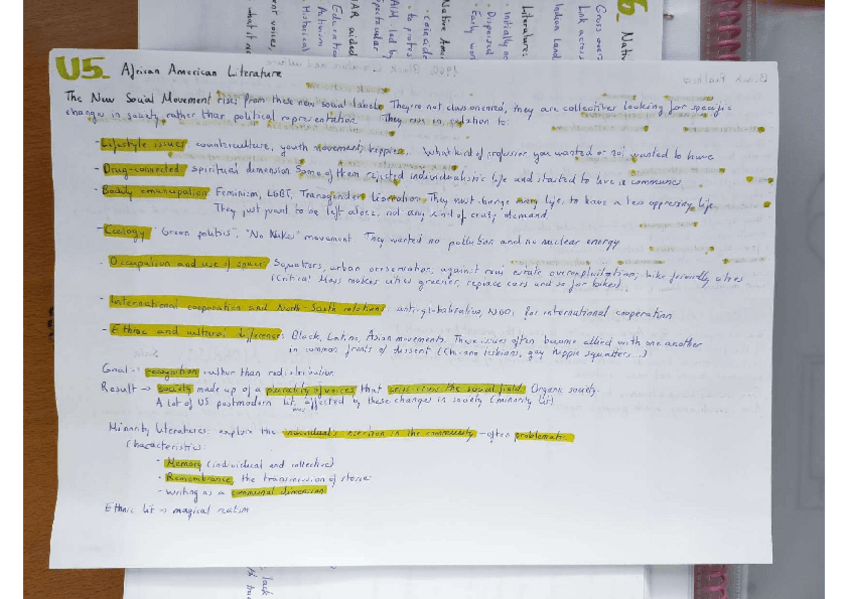 U5_ African American Literature
The New Social Movement rises from these new social labels. They're not class oriented, they are collectives looking for specific
changes in society rather than political representation. They rise in relation to:
- Lifestyle issues: counterculture, youth movements, hippies. What kind of profession you wanted or not wanted to have
- Drug-connected spiritual dimension Some of them rejected individualistic life and started to live in communes
- Bodily emancipation Feminism, LGBT, Transgender liberation. They want change every life, to have a less oppressing life
They just want to be left alone, not any kind of crazy demand
- Ecology "Green politics", "No Nukes" movement. They wanted no pollution and no nuclear energy
- Occupation and use of space Squatters, urban preservation, against real estate overexploitation, bike friendly cities
(Critical Mass makes cities greener, replace cars and so for bikes)
- International cooperation and North-South relations: anti-globalisation, NGOs for international cooperation
- Ethnic and cultural difference: Black, Latino, Asian movements. These issues often become allied with one another
in common fronts of dissent (Chicano lesbians, gay hippie squatters...)
Goal → recognition rather than redistribution
Result → society made up of a plurality of voices that the social field. Organic society.
A lot of US postmodern lit. was affected by these changes in society (minority lit)
Minority literatures: explore the individual's insertion in the community - often problematic
Characteristics:
- Memory (individual and collective)
- Remembrance, the transmission of stories
- Writing as a communal dimension
Ethnic lit → magical realism
6_ Nativ
Gross over
Link across
Indian Land
Literature:
- Initially
- Dispersed
- Early wor
Native Amer
- coincide
- to protes
AIM led by
spectacular
aided
Educatio
Activism
Historical
ent voices,
what it